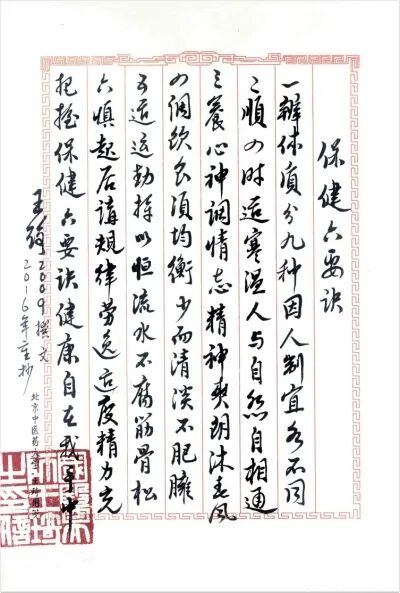 保健六要诀
一辨体质分九种因人制宜各不同
二順四时适寒温人与自然自相通
三養心神调情志精神爽朗沐春风
四调饮食须均衡少而清淡不肥臃
五适运动持以恒流水不腐筋骨松
六慎起居講规律劳逸适度精力充
把握保健六要诀健康自在我手中
王琦2009撰文
2016年重抄
北京中医药大学王琦用笺